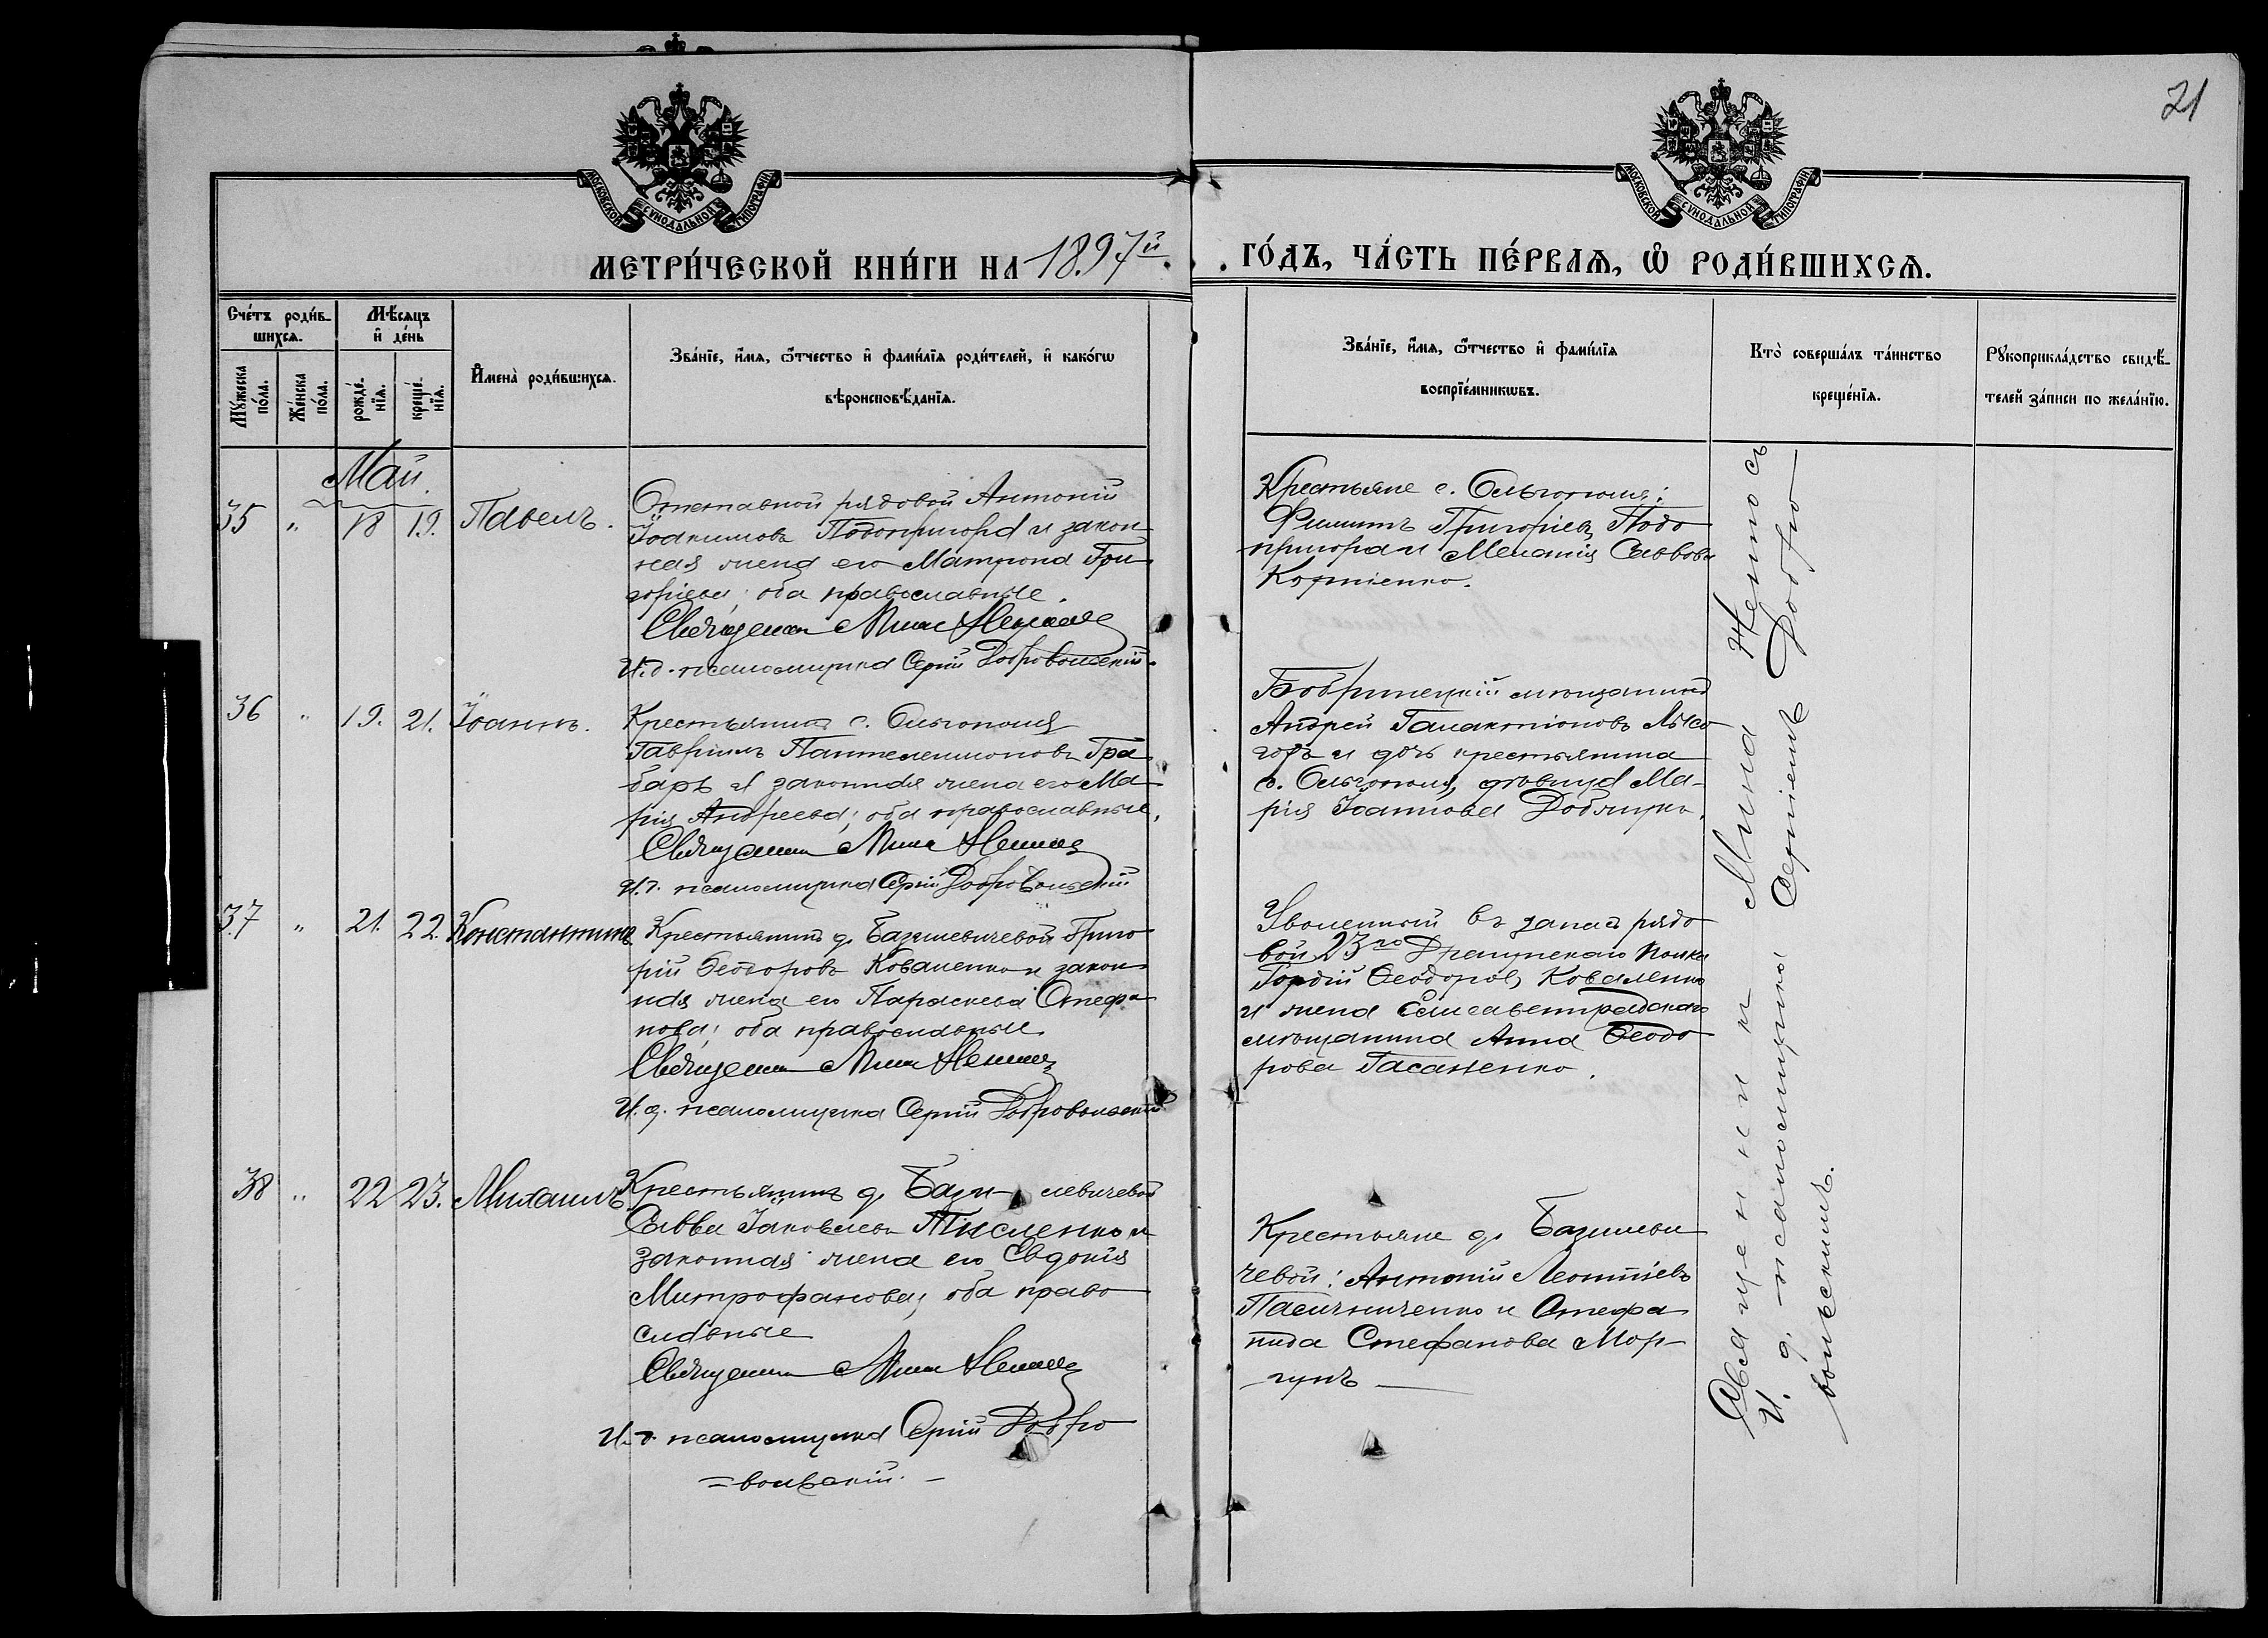 21
МОСКОВСКОЙ СУНОДАЛЬНОЙ ТИПОГРАФІИ
МОСКОВСКОЙ СУНОДАЛЬНОЙ ТИПОГРАФІИ
МЕТРИ́ЧЕСКОЙ КНИ́ГИ НА 1897й
ГО́ДЪ, ЧА́СТЬ ПЕ́РВАѦ, Ѽ РОДИ́ВШИХСѦ.
Сче́тъ роди́в-
шихсѧ.
Мꙋ́жеска по́ла.
Же́нска по́ла.
Мѣ́сѧцъ
и҆ де́нь
рожде́-
нїѧ.
креще́-
нїѧ.
И҆мена̀ роди́вшихсѧ.
Зва́нїе, и҆́мѧ, ѻ҆́тчество и҆ фами́лїѧ роди́телей, и҆ како́гѡ
вѣроисповѣ́данїѧ.
Зва́нїе, и҆́мѧ, ѻ҆́тчество и҆ фами́лїѧ
воспрїе́мникѡвъ.
Кто̀ соверша́лъ та́инство
креще́нїѧ.
Рꙋкоприкла́дство свидѣ́-
телей за́писи по жела́нїю.
Май.
35 " 18 19. Павелъ.
Отставной рядовой Антоній
Іоакимовъ Подопригора и закон
ная жена его Матрона Гри
горіева; оба православные.
Священникъ Мина
И. д. псаломщика Сергій Добровольскій.
Крестьяне с. Ольгополя:
Филиппъ Григоріевъ Подо
пригора и Меланія Саввова
Корніенко.
36 " 19. 21. Іоаннъ.
Крестьянинъ с. Ольгополя
Гавріилъ Пантелеимоновъ Гра
барь и законная жена его Ма
рія Андреева; оба православные.
Священникъ Мина
И. д. псаломщика Сергій Добровольскій
Бобринецкій мѣщанинъ
Андрей Галактіоновъ Лысо
горъ и дочь крестьянина
с. Ольгополя, дѣвица Ма-
рія Іоаннова
37 " 21. 22. Константинъ
Крестьянинъ д. Базилевичевой Григо
рій Ѳеодоровъ Коваленко и закон
ная жена его Параскева Стефа
нова; оба православные
Священникъ Мина
И. д. псаломщика Сергій Добровольскій
Уволенный въ запасъ рядо
вой 23го Драгунскаго полка
Гордій Ѳеодоровъ Коваленко
и жена Елисаветградскаго
мѣщанина Анна Ѳеодо
рова Гасаненко.
38 " 22 23. Михаилъ
Крестьянинъ д. Бази- левичевой
Савва Іаковлевъ Тисленко и
законная жена его Евдокія
Митрофанова, оба право
славные
Священникъ Мина
И. д. псаломщика Сергій Добро
= вольскій. -
Крестьяне д. Базилеви
чевой: Антоній Леонтіевъ
Пасичниченко и Стефа
нида Стефанова Мор-
гунъ
Священникъ Мина съ
И. д. псаломщика Сергіемъ Добро
вольскимъ.